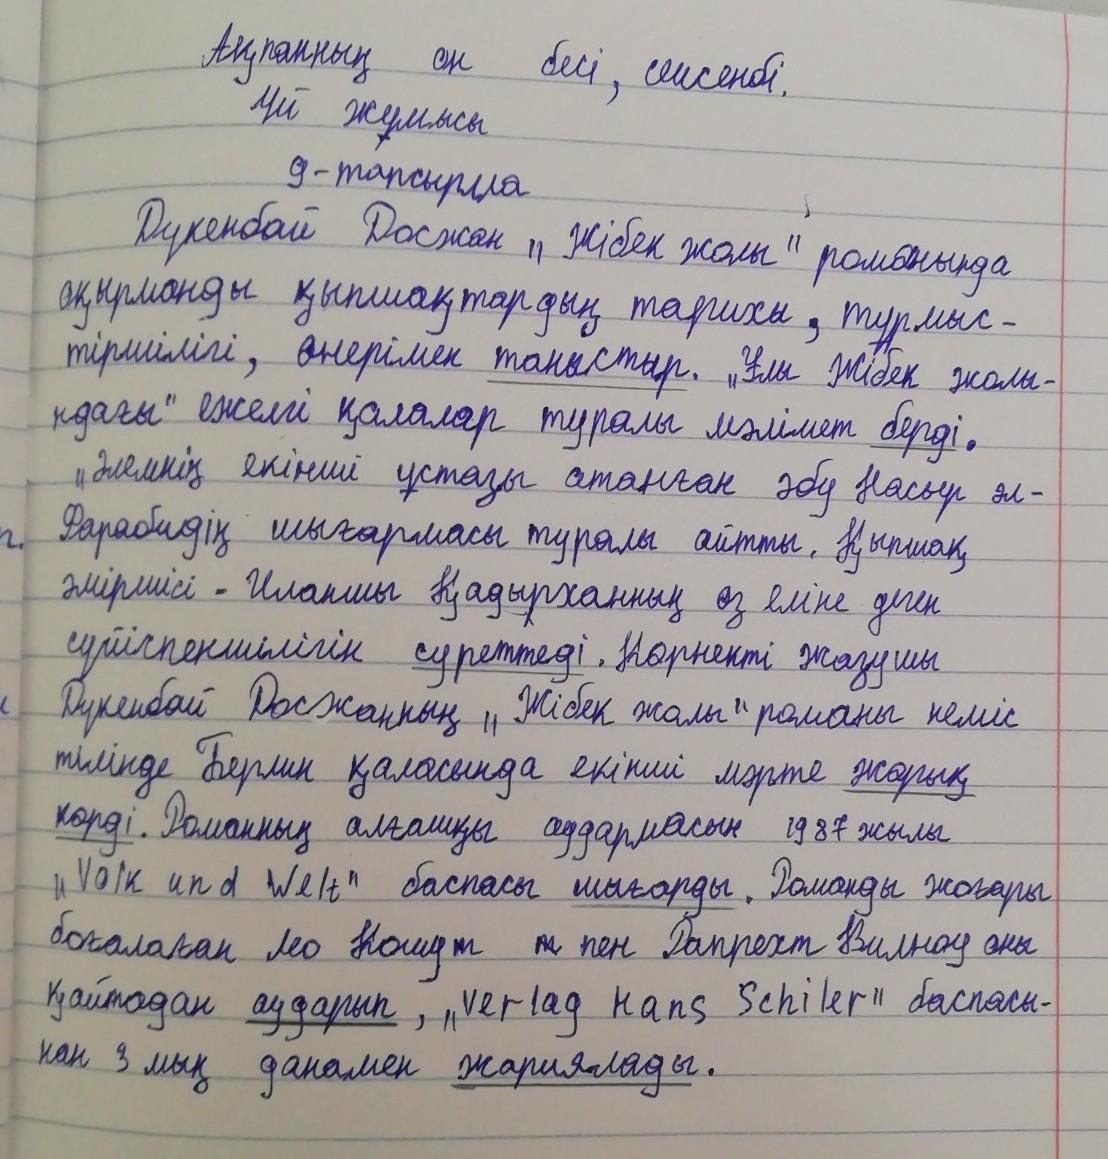 Ақпанның он бесі, сейсенбі.
Үй жұмысы
9-тапсырма
Дүкенбай Досжан „Жібек жолы" романында
оқырманды қыпшақтардың тарихы, тұрмыс-
тіршілігі, өнерімен таныстыр. „Ұлы Жібек жолы-
ндағы" ежелгі қалалар туралы мәлімет берді.
„Әлемнің екінші ұстазы атанған әбу Насыр әл-
Фарабидің шығармасы туралы айтты. Қыпшақ
әміршісі - Иланшы Қадырханның өз еліне деген
сүйіспеншілігін суреттеді. Көрнекті жазушы
Дүкенбай Досжанның „Жібек жолы" романы неміс
тілінде Берлин қаласында екінші мәрте жарық
көрді. Романның алғашқы аудармасын 1987 жылы
„Volk und Welt" баспасы шығарды. Романды жоғары
бағалаған Лео Кошут пен Рапрехт Вилнау оны
қайтадан аударып, „Verlag Hans Schiler" баспасы-
нан 3 мың данамен жариялады.